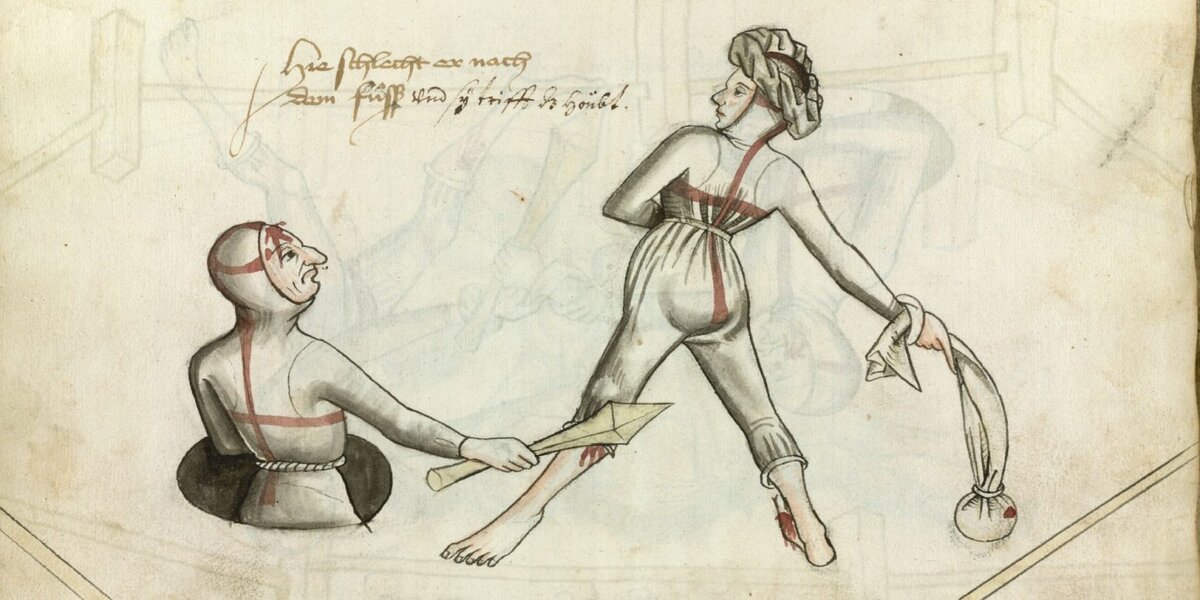 Hie schlecht er nach
dem fůß und sy triff dz hoŭbt.